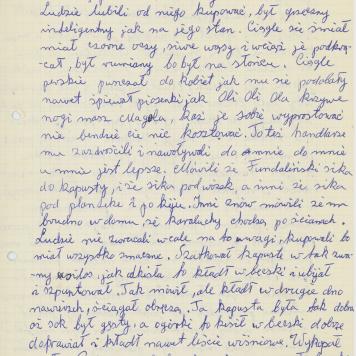 Ludzie lubili od niego kupować, był grzeczny
inteligentny jak na jego stan. Ciągle się śmiał
miał czarne oczy, siwe wąsy i wciąż je podkrę-
cał, był rumiany bo był na słońcu. Ciągle
perskie puszczał do kobiet jak mu się podobały
nawet śpiewał piosenki jak Oli Oli Ola krzywe
nogi masz
nie bendzie cię nic kosztować. To też handlarze
mu zazdrościli i nawoływali do mnie do mnie
u mnie jest lepsze. Mówili że Fundaliński sika
do kapusty, i że sika pod wozek, a inni że sika
pod plandekę i po kiju. Inni znów mówili że ma
brudno w domu, że karaluchy chodzą po ścianach.
Ludzie nie zwracali wcale na to uwagi, kupowali bo
miał wszystko smaczne. Szatkował kapustę w tak zwa-
ny
i szpuntował. Tak mówił, ale kładł w drugie dno
nawierzch, ściągał obręczą. Ta kapusta była tak dobra
aż sok był gęsty, a ogórki to kisił w beczki dobrze
doprawiał i kładł nawet liście wiśniowe.